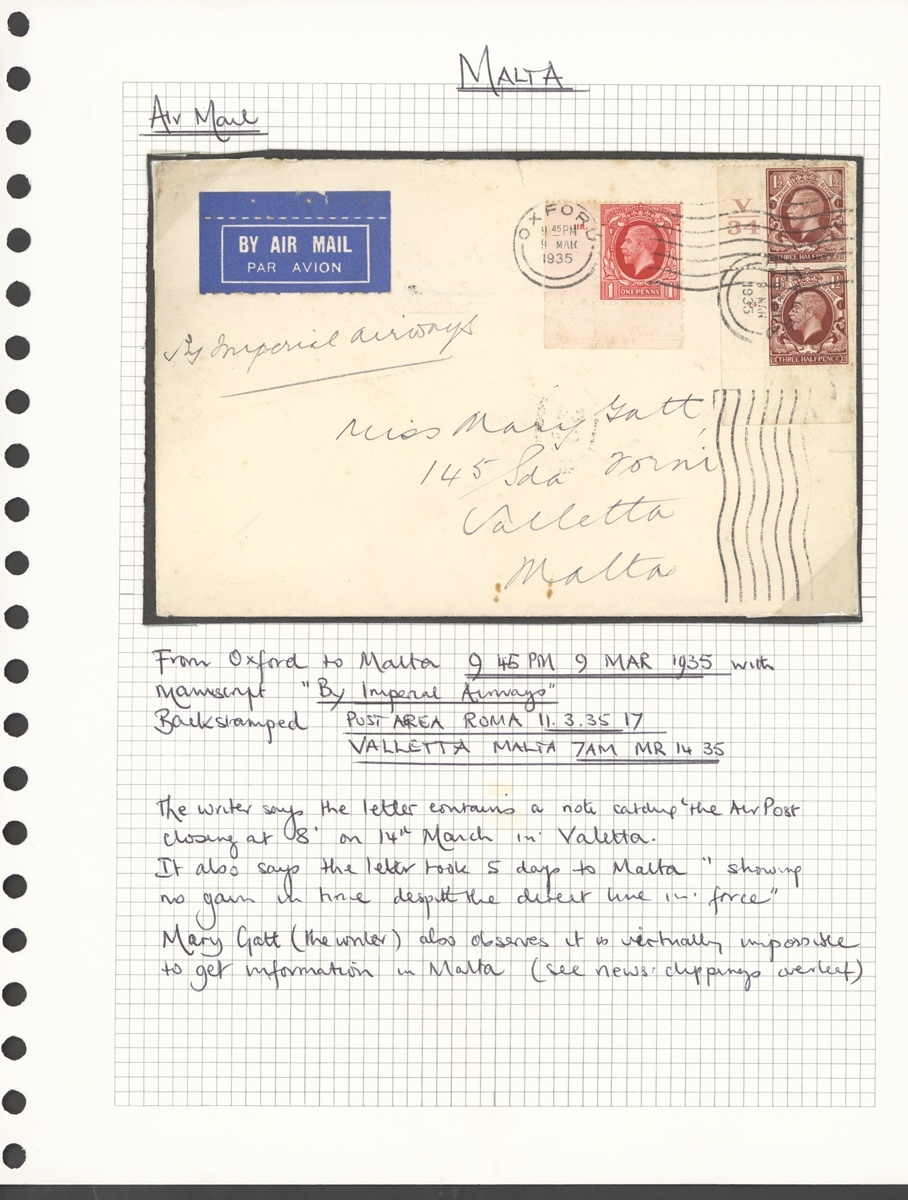 MALTA
Air Mail
BY AIR MAIL
PAR AVION
OXFORD
9 45PM
9 MAR
1935
1 1
ONE PENNY
V
34
1½ 1½
THREE HALFPENCE
9 MAR
1935
1½ 1½
THREE HALFPENCE
By Imperial Airways
Miss Mary Gatt,
145 Sda Forni
Valletta
Malta
From Oxford to Malta 9 45 PM 9 MAR 1935 with
manuscript "By Imperial Airways"
Backstamped POST AREA ROMA 11.3.35 17
VALLETTA MALTA 7AM MR 14 35
The writer says the letter contains a note catching 'the Air Post
closing at 8' on 14th March in Valetta.
It also says the letter took 5 days to Malta "showing
no gain in time despite the direct line in force"
Mary Gatt (the writer) also observes it is virtually impossible
to get information in Malta (see news clippings overleaf)